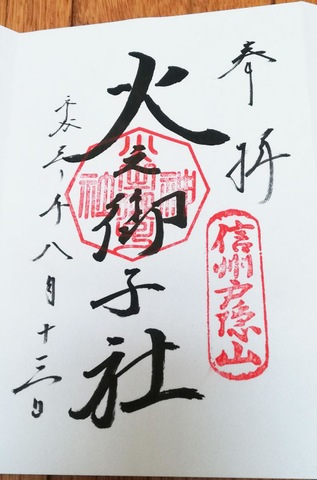 奉拝
信州戸隠山
火之御子社
平成三十年八月十三日